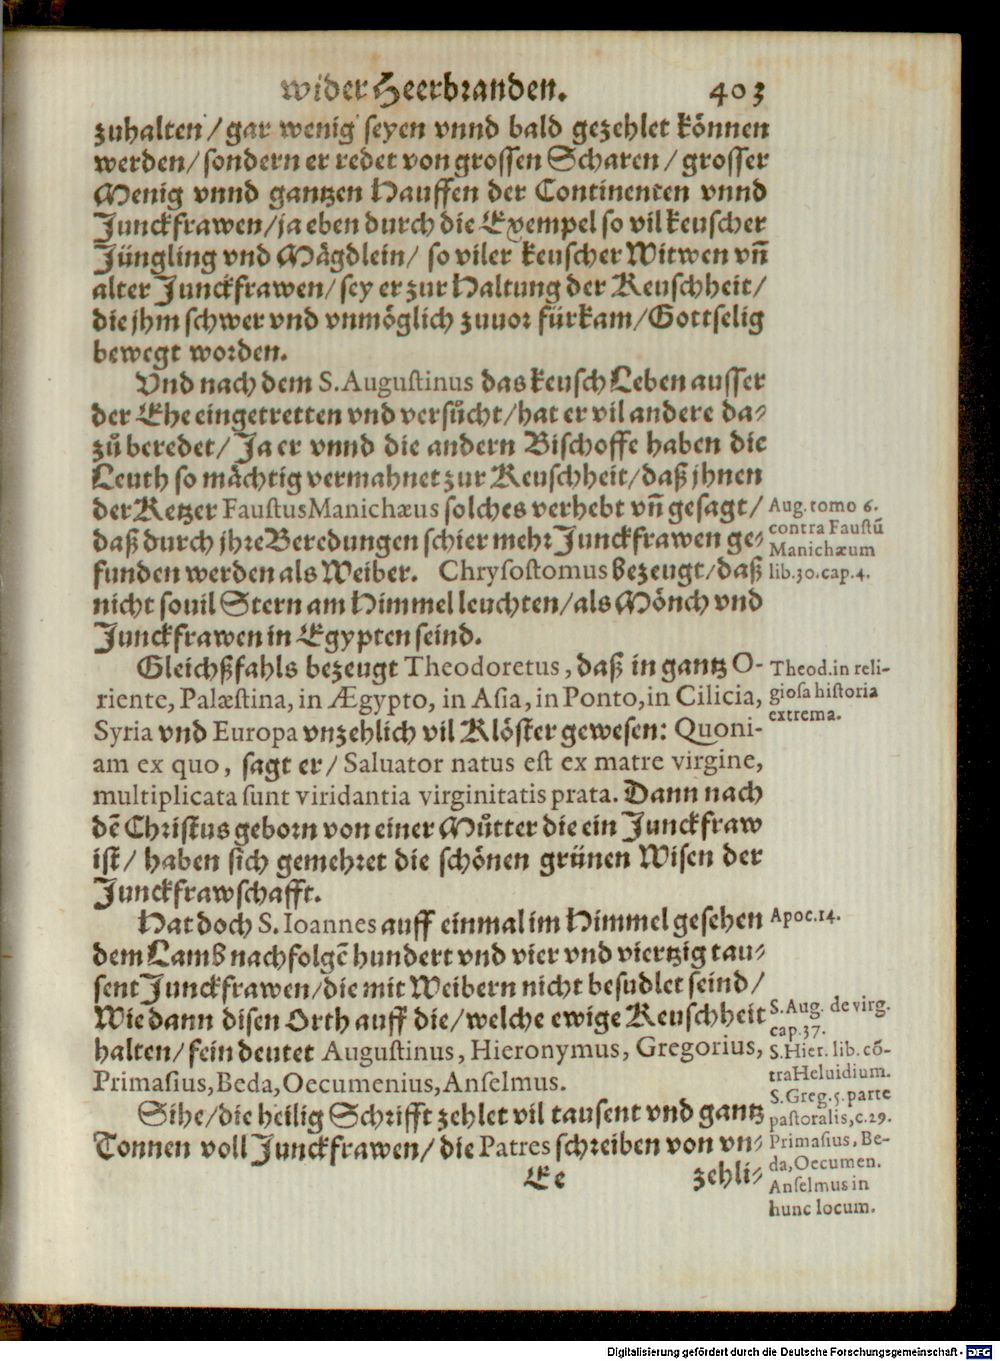 wider Heerbranden. 403
zuhalten/ gar wenig seyen vnnd bald gezehlet können
werden/ sondern er redet von grossen Scharen/ grosser
Menig vnnd gantzen Hauffen der Continenten vnnd
Junckfrawen/ ja eben durch die Exempel so vil keuscher
Jüngling vnd Mågdlein/ so viler keuscher Witwen vñ
alter Junckfrawen/ sey er zur Haltung der Keuschheit/
die jhm schwer vnd vnmöglich zuuor fürkam/ Gottselig
bewegt worden.
Vnd nach dem S. Augustinus das keusch Leben ausser
der Ehe eingetretten vnd versůcht/ hat er vil andere da-
zů beredet/ Ja er vnnd die andern Bischoffe haben die
Leuth so måchtig vermahnet zur Keuschheit/ daß jhnen
der Ketzer Faustus Manichæus solches verhebt vñ gesagt/
daß durch jhre Beredungen schier mehr Junckfrawen ge-
funden werden als Weiber. Chrysostomus bezeugt/ daß
nicht souil Stern am Himmel leuchten/ als Mönch vnd
Junckfrawen in Egypten seind.
Aug. tomo 6.
contra Faustũ
Manichæum
lib.30.cap.4.
Gleichßfahls bezeugt Theodoretus, daß in gantz O-
riente, Palæstina, in Ægypto, in Asia, in Ponto, in Cilicia,
Syria vnd Europa vnzehlich vil Klöster gewesen: Quoni-
am ex quo, sagt er/ Saluator natus est ex matre virgine,
multiplicata sunt viridantia virginitatis prata. Dann nach
dẽ Christus geborn von einer Můtter die ein Junckfraw
ist/ haben sich gemehret die schönen grünen Wisen der
Junckfrawschafft.
Theod. in reli-
giosa historia
extrema.
Hat doch S. Ioannes auff einmal im Himmel gesehen
dem Lamb nachfolgẽ hundert vnd vier vnd viertzig tau-
sent Junckfrawen/ die mit Weibern nicht besudlet seind/
Wie dann disen Orth auff die/ welche ewige Keuschheit
halten/ fein deutet Augustinus, Hieronymus, Gregorius,
Primasius, Beda, Oecumenius, Anselmus.
Apoc.14.
S. Aug. de virg.
cap.37.
S. Hier. lib. cõ-
tra Heluidium.
S. Greg.5.parte
pastoralis,c.29.
Primasius, Be-
da, Oecumen.
Anselmus in
hunc locum.
Sihe/ die heilig Schrifft zehlet vil tausent vnd gantz
Tonnen voll Junckfrawen/ die Patres schreiben von vn-
Ee zehli-
Digitalisierung gefördert durch die Deutsche Forschungsgemeinschaft - DFG